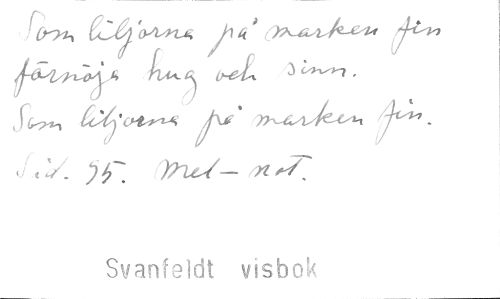 Som liljorna på marken fin
förnöja hug och sinn.
Som liljorna på marken fin.
Sid. 95. Mel-not.
Svanfeldt visbok